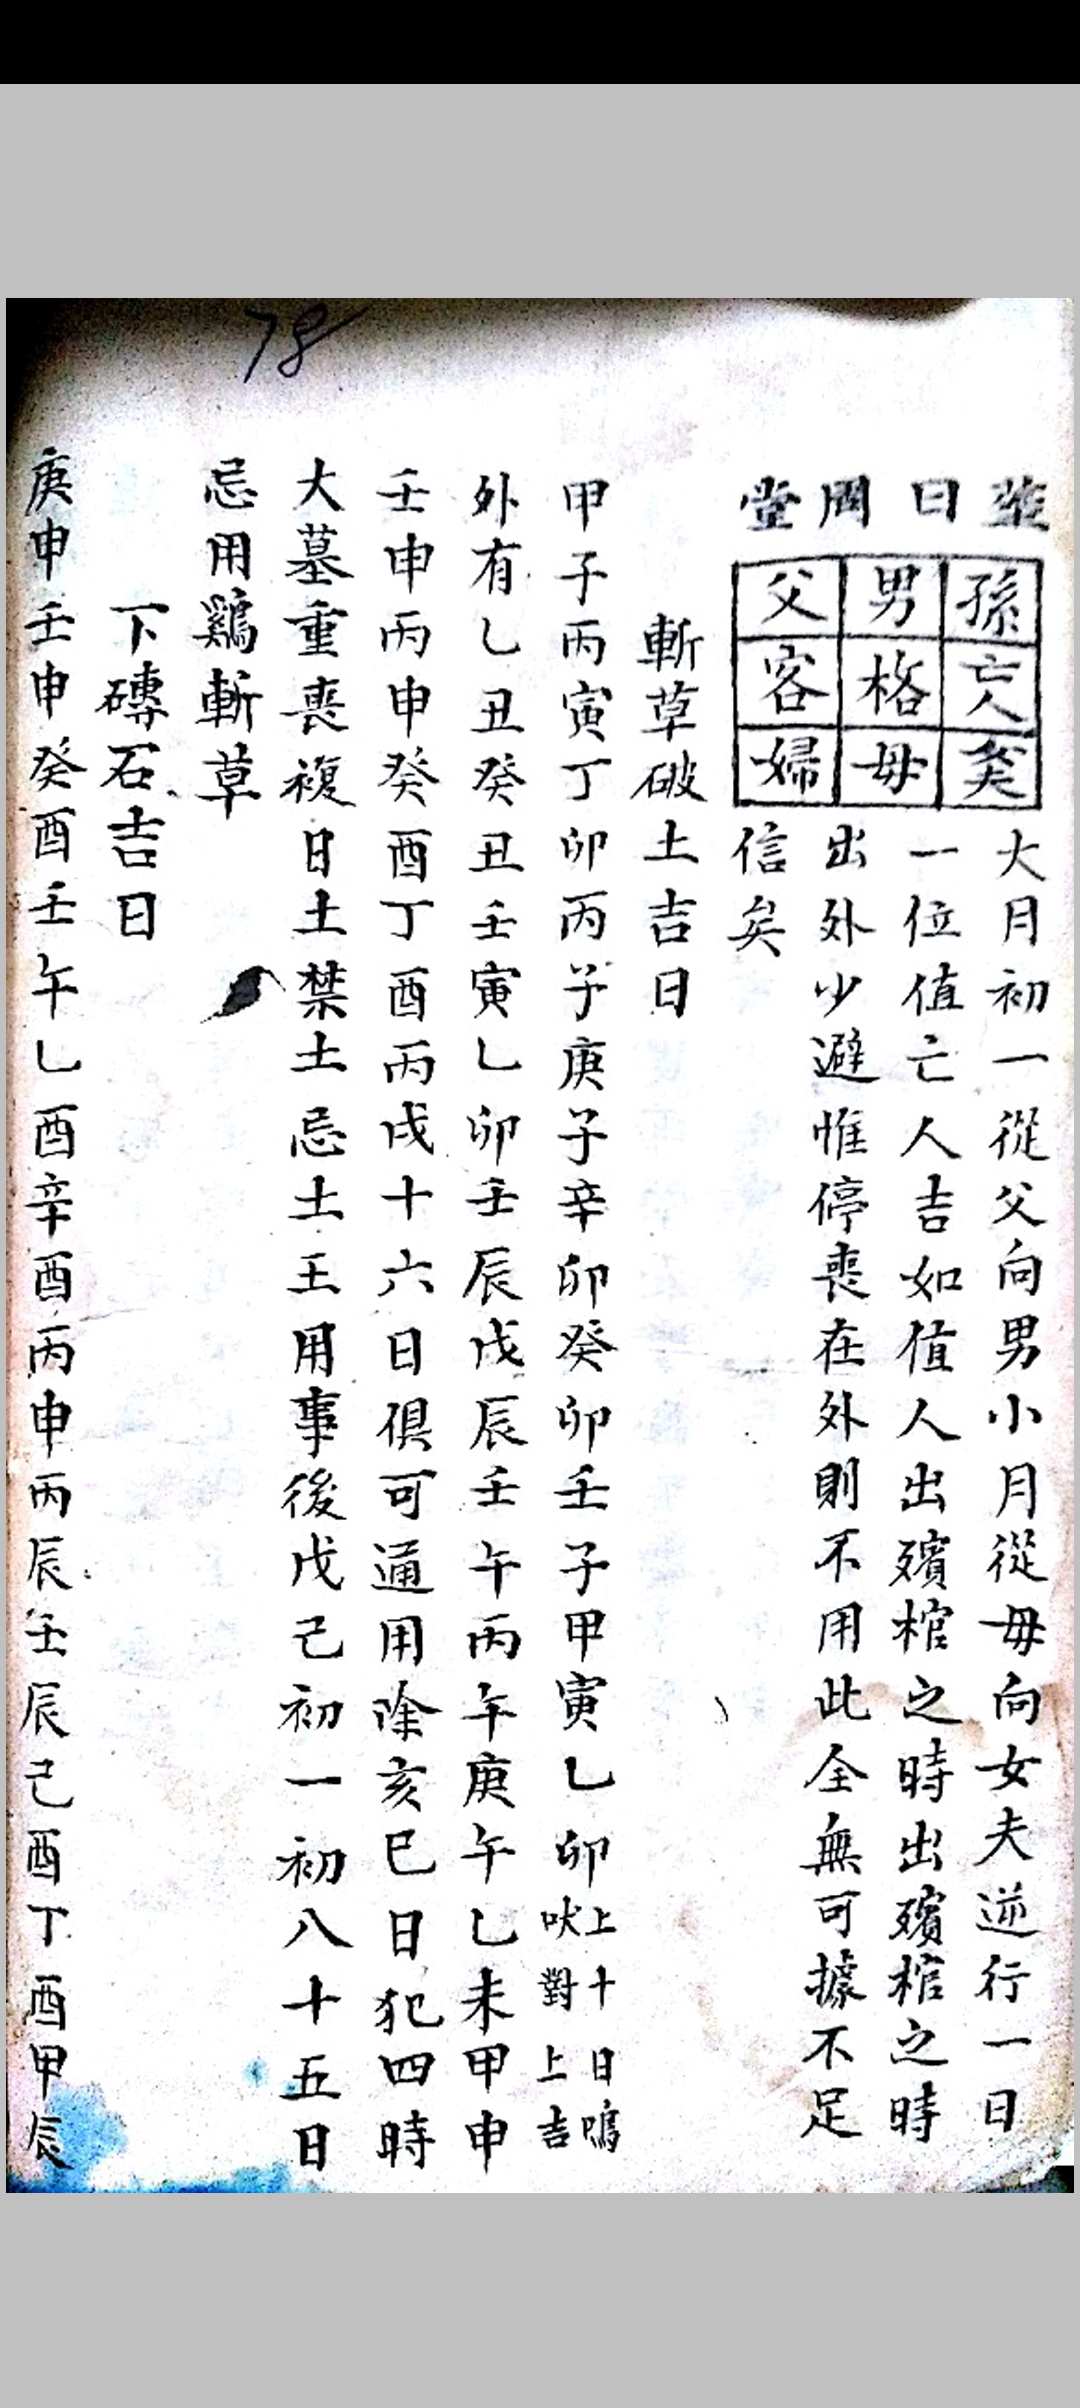 78
葬日周堂
孫 男 父
亡人 格 客
女夫 母 婦
大月初一從父向男小月從毋向女夫逆行一日
一位值亡人吉如值人出殯棺之時出殯棺之時
出外少避惟停喪在外則不用此全無可據不足
信矣
斬草破土吉日
甲子丙寅丁卯丙子庚子辛卯癸卯壬子甲寅乙卯上十日鳴吠對上吉
外有乙丑癸丑壬寅乙卯壬辰戊辰壬午丙午庚午乙未甲申
壬申丙申癸酉丁酉丙戌十六日俱可通用除亥巳日犯四時
大墓重喪複日土禁土忌土王用事後戊己初一初八十五日
忌用鷄斬草
下磚石吉日
庚申壬申癸酉壬午乙酉辛酉丙申丙辰壬辰己酉丁酉甲辰